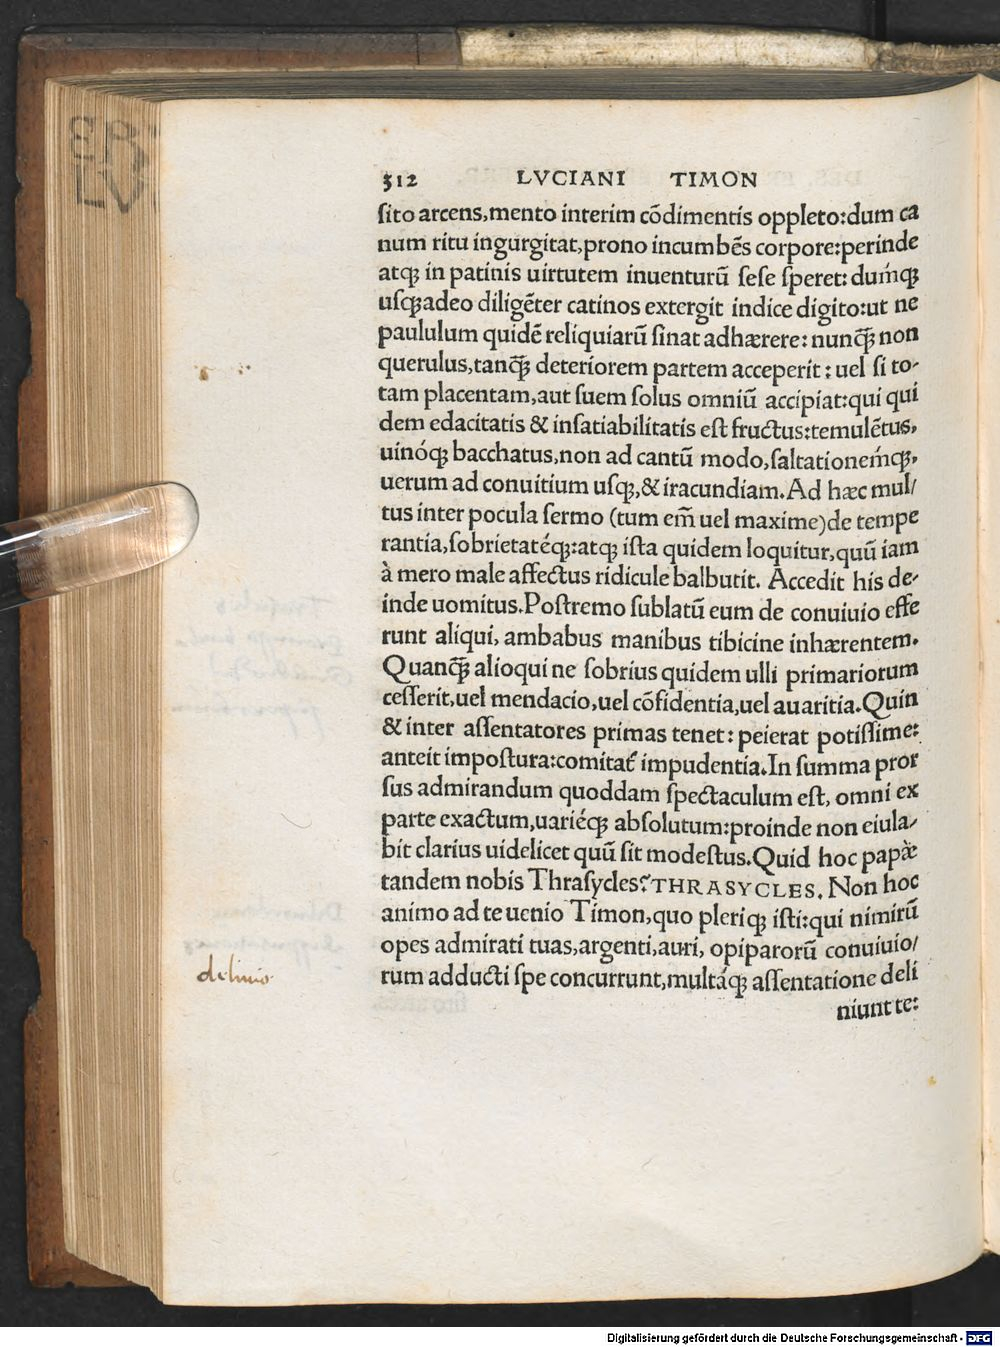 512 LVCIANI TIMON
ſito arcens,mento interim cōdimentis oppleto:dum ca
num ritu ingurgitat,prono incumbēs corpore:perinde
atqꝫ in patinis uirtutem inuenturū ſeſe ſperet: dumqꝫ́
uſqꝫadeo diligēter catinos extergit indice digito:ut ne
paululum quidē reliquiarū ſinat adhærere: nunqꝫ̄ non
querulus,tanqꝫ̄ deteriorem partem acceperit: uel ſi to-
tam placentam,aut ſuem ſolus omniū accipiat:qui qui
dem edacitatis & inſatiabilitatis eſt fructus:temulētus,
uinóqꝫ bacchatus,non ad cantū modo,ſaltationemqꝫ́,
uerum ad conuitium uſqꝫ,& iracundiam.Ad hæc mul/
tus inter pocula ſermo (tum em̄ uel maxime)de tempe
rantia,ſobrietatéqꝫ:atqꝫ iſta quidem loquitur,quū iam
à mero male affectus ridicule balbutit. Accedit his de-
inde uomitus.Poſtremo ſublatū eum de conuiuio effe
runt aliqui, ambabus manibus tibicine inhærentem.
Quanqꝫ̄ alioqui ne ſobrius quidem ulli primariorum
ceſſerit,uel mendacio,uel cōfidentia,uel auaritia.Quin
& inter aſſentatores primas tenet: peierat potiſſime:
anteit impoſtura:comitat᷒ impudentia.In ſumma pror
ſus admirandum quoddam ſpectaculum eſt, omni ex
parte exactum,uariéqꝫ abſolutum:proinde non eiula/
bit clarius uidelicet quū ſit modeſtus.Quid hoc papæ̀
tandem nobis Thraſycles? THRASYCLES. Non hoc
animo ad te uenio Timon,quo pleriqꝫ iſti:qui nimirū
opes admirati tuas,argenti,auri, opiparorū conuiuio/
rum adducti ſpe concurrunt,multáqꝫ aſſentatione deli
niunt te:
delinio
Digitalisierung gefördert durch die Deutsche Forschungsgemeinschaft - DFG